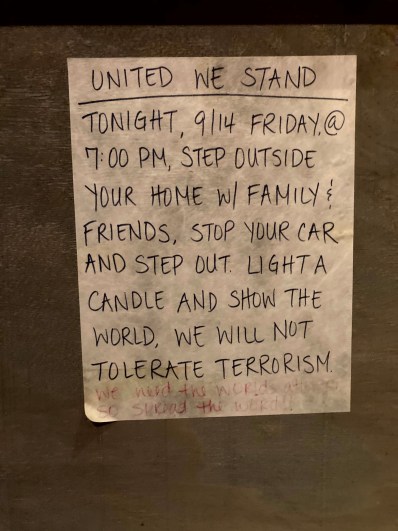 UNITED WE STAND
TONIGHT, 9/14 FRIDAY, @
7:00 PM, STEP OUTSIDE
YOUR HOME W/ FAMILY &
FRIENDS, STOP YOUR CAR
AND STEP OUT. LIGHT A
CANDLE AND SHOW THE
WORLD, WE WILL NOT
TOLERATE TERRORISM.
We need the worlds
so spread the word!